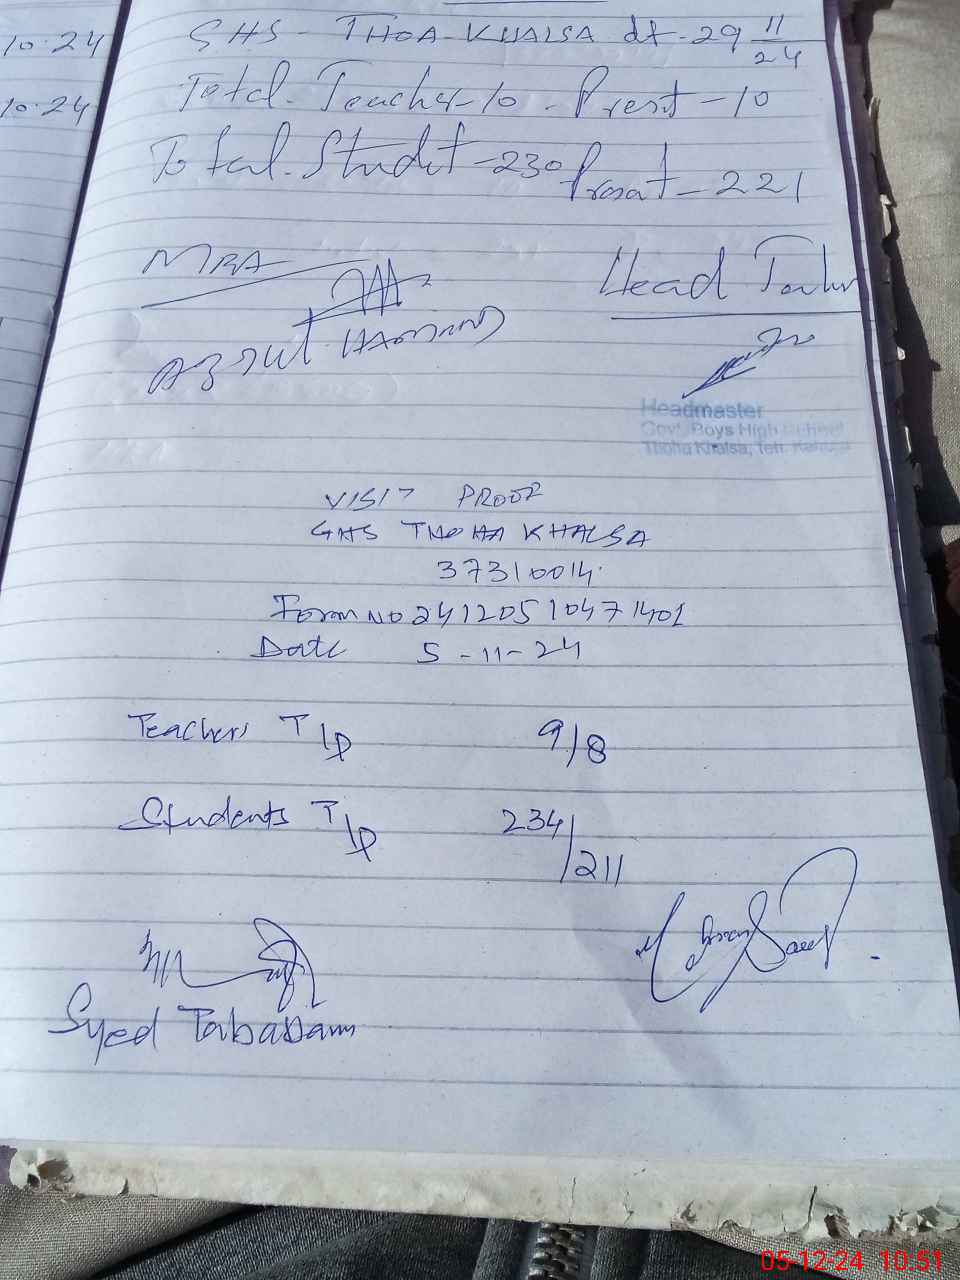 10.24
10.24
GHS - THOA-KHALSA dt. 29 11/24
Total. Teacher-10. Prest-10
Total. Studet-230 Presat-221
MEA
Head
Headmaster
Govt. Boys High School
Thoha Khalsa, Teh.
VISIT PROOF
GHS THOHA KHALSA
37310014.
Form No 24120510471401
Date 5-11-24
Teachers T/P 9/8
Students T/P 234/211
Syed Tabassam
05-12-24 10:51